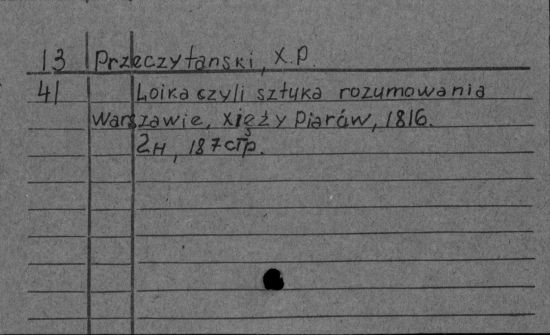 13 Przeczytanski, X.P.
41 Loika czyli sztuka rozumowania
Warszawie, Xięży Piarów, 1816.
2н, 187 стр.